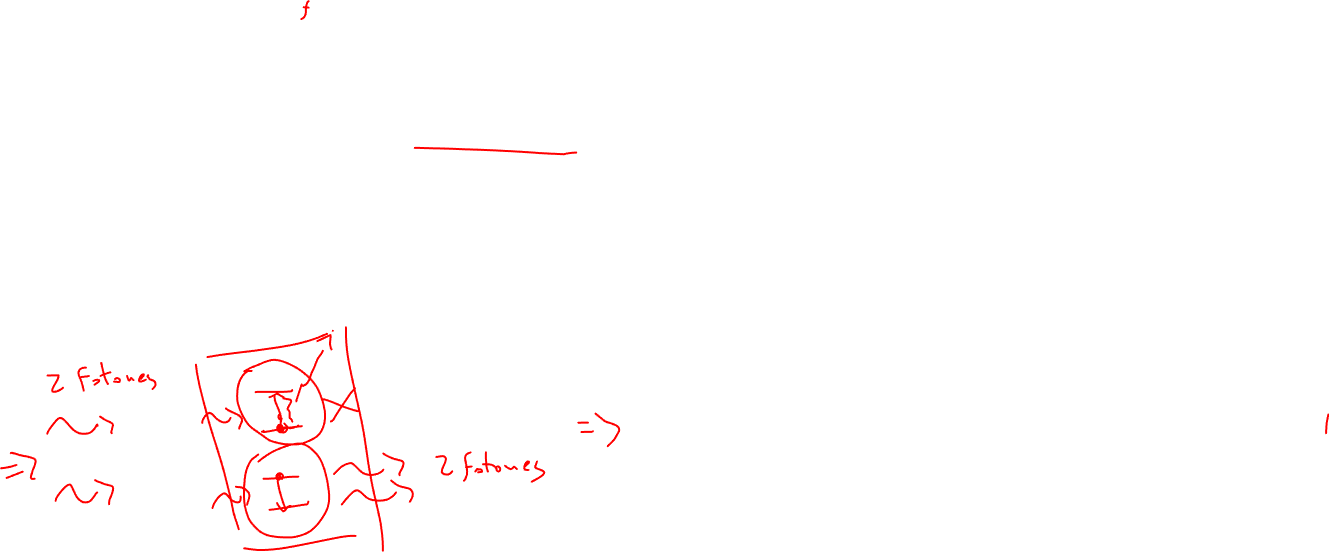 f
2 fotones
=>
=>
2 fotones